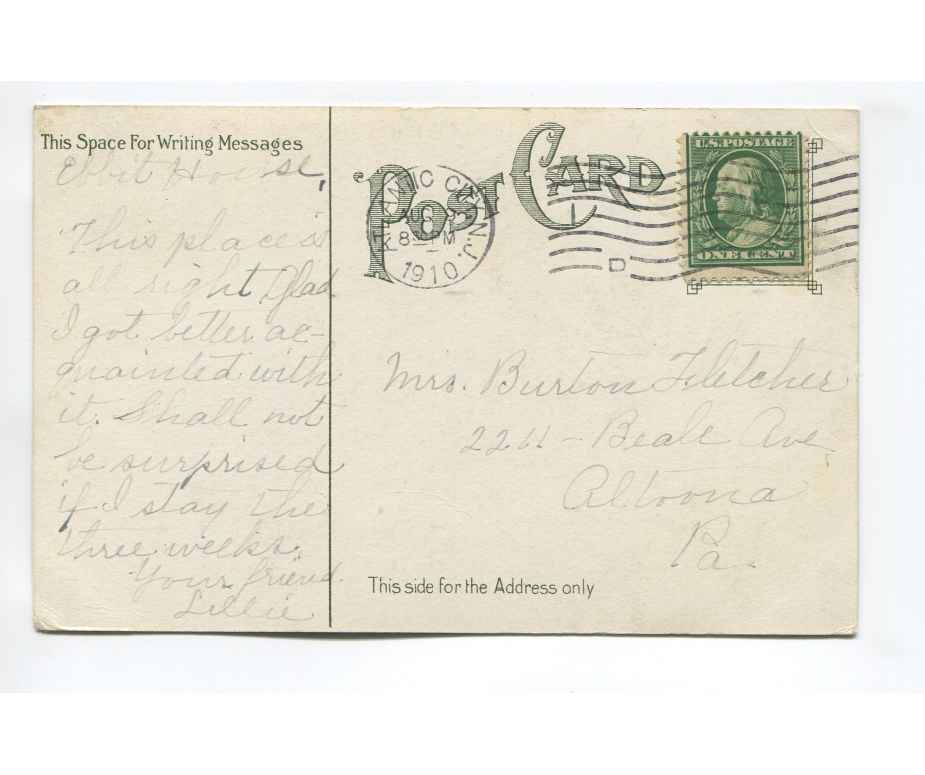 This Space For Writing Messages
Ebbit House,
This place is
all right Glad
I got better ac-
quainted with
it. Shall not
be surprised
if I stay the
three weeks.
Your friend
Lillie
POST CARD
ATLANTIC CITY, N.J.
AUG
8 PM
1910.
1
D
U.S. POSTAGE
ONE CENT
Mrs. Burton Fletcher
2211 - Beale Ave,
Altoona
Pa.
This side for the Address only